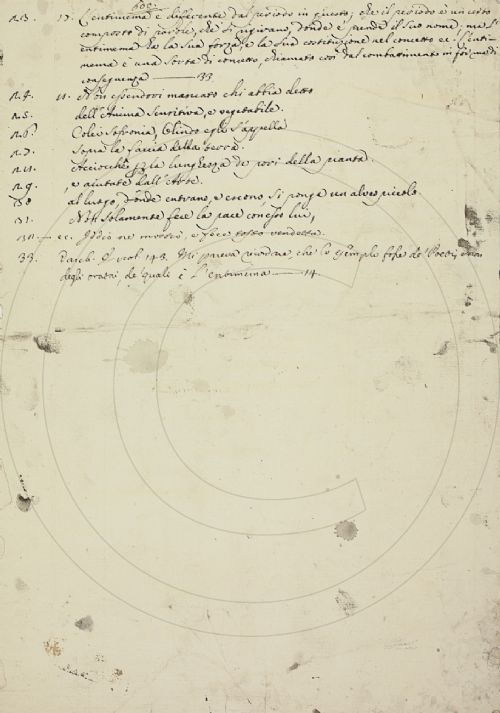 n.3. 17. L'entimema è differente dal periodo in questo; che il periodo è un certo
composto di parole, che si girano, donde prende il suo nome, ma l'
entimema ha la sua forza, e la sua costituzione nel concetto e l'enti-
mema è una sorta di concetto, chiamato così dal combattimento in
conseguenza —— 33
n.4. 11. Non essendovi mancato chi abbia detto
n.5. dell'Anima sensitiva, e vegetabile.
n.6. Colei Sofronia, Olindo egli s'appella
n.7. Sopra la faccia della terra.
Acciocchè la lunghezza de' pori della pianta.
n.9. , e aiutate dall'Arte.
al luogo, donde entrano, e escono si ponga un alveo piccolo
31. Non solamente fece la pace con esso lui,
Iddio ne mostrò, e fece vendetta.
33. 143. Mi pareva che lo esempio fosse de' Poeti,
degli oratori, de' quali è L'Entimema —— 14